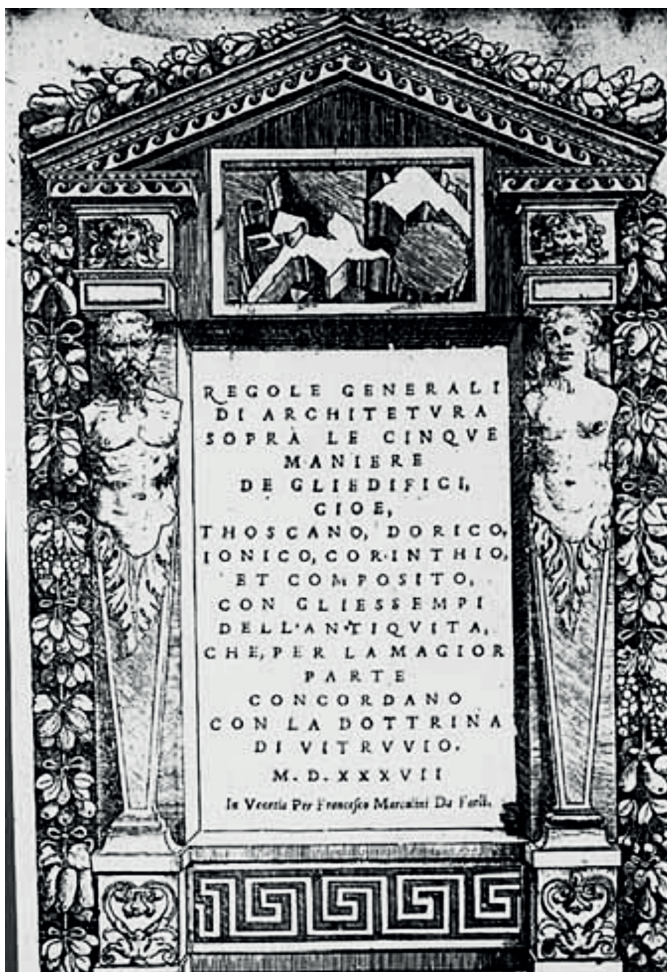 REGOLE GENERALI
DI ARCHITETVRA
SOPRA LE CINQVE
MANIERE
DE GLIEDIFICI,
CIOE,
THOSCANO, DORICO,
IONICO, CORINTHIO,
ET COMPOSITO,
CON GLIESSEMPI
DELL'ANTIQVITA,
CHE, PER LA MAGIOR
PARTE
CONCORDANO
CON LA DOTTRINA
DI VITRVVIO.
M. D. XXXVII
In Venetia Per Francesco Marcolini Da Forlì.